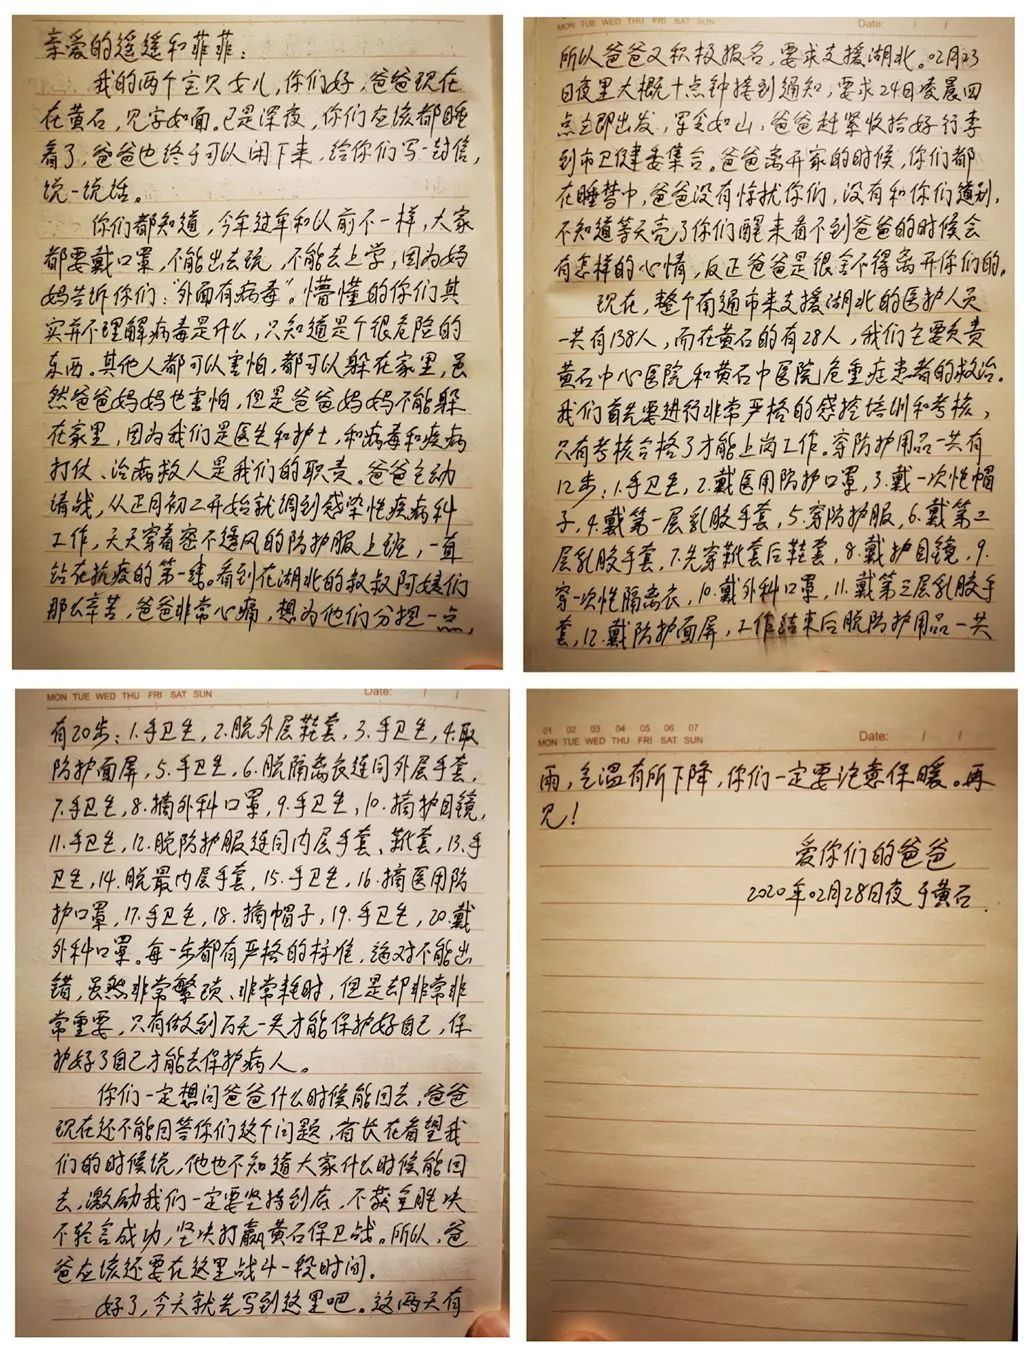 亲爱的遥遥和菲菲：
我的两个宝贝女儿，你们好，爸爸现在
在黄石，见字如面。已是深夜，你们应该都睡
着了，爸爸也终于可以闲下来，给你们写一封信，
说一说话。
你们都知道，今年过年和以前不一样，大家
都要戴口罩，不能出去玩，不能去上学，因为妈
妈告诉你们：“外面有病毒”。懵懂的你们其
实并不理解病毒是什么，只知道是个很危险的
东西。其他人都可以害怕，都可以躲在家里，虽
然爸爸妈妈也害怕，但是爸爸妈妈不能躲
在家里，因为我们是医生和护士，和病毒和疾病
打仗、治病救人是我们的职责。爸爸主动
请战，从正月初二开始就调到感染性疾病科
工作，天天穿着密不透风的防护服上班，一直
站在抗疫的第一线。看到在湖北的叔叔阿姨们
那么辛苦，爸爸非常心痛，想为他们分担一点，
MON TUE WED THU FRI SAT SUN Date: / /
所以爸爸又积极报名，要求支援湖北。02月23
日夜里大概十点钟接到通知，要求24日凌晨四
点立即出发，军令如山，爸爸赶紧收拾好行李
到市卫健委集合。爸爸离开家的时候，你们都
在睡梦中，爸爸没有惊扰你们，没有和你们道别，
不知道等天亮了你们醒来看不到爸爸的时候会
有怎样的心情，反正爸爸是很舍不得离开你们的。
现在，整个南通市来支援湖北的医护人员
一共有138人，而在黄石的有28人，我们主要负责
黄石中心医院和黄石中医院危重症患者的救治。
我们首先要进行非常严格的感控培训和考核，
只有考核合格了才能上岗工作。穿防护用品一共有
12步：1.手卫生，2.戴医用防护口罩，3.戴一次性帽
子，4.戴第一层乳胶手套，5.穿防护服，6.戴第二
层乳胶手套，7.先穿靴套后鞋套，8.戴护目镜，9.
穿一次性隔离衣，10.戴外科口罩，11.戴第三层乳胶手
套，12.戴防护面屏，工作结束后脱防护用品一共
MON TUE WED THU FRI SAT SUN Date: / /
有20步：1.手卫生，2.脱外层鞋套，3.手卫生，4.取
防护面屏，5.手卫生，6.脱隔离衣连同外层手套，
7.手卫生，8.摘外科口罩，9.手卫生，10.摘护目镜，
11.手卫生，12.脱防护服连同内层手套、靴套，13.手
卫生，14.脱最内层手套，15.手卫生，16.摘医用防
护口罩，17.手卫生，18.摘帽子，19.手卫生，20.戴
外科口罩。每一步都有严格的标准，绝对不能出
错，虽然非常繁琐、非常耗时，但是却非常非
常重要，只有做到万无一失才能保护好自己，保
护好了自己才能去保护病人。
你们一定想问爸爸什么时候能回去，爸爸
现在还不能回答你们这个问题，省长在看望我
们的时候说，他也不知道大家什么时候能回
去，激励我们一定要坚持到底，不获全胜决
不轻言成功，坚决打赢黄石保卫战。所以，爸
爸应该还要在这里战斗一段时间。
好了，今天就先写到这里吧。这两天有
01 02 03 04 05 06 07
MON TUE WED THU FRI SAT SUN Date: / /
雨，气温有所下降，你们一定要注意保暖。再
见！
爱你们的爸爸
2020年02月28日夜 于黄石